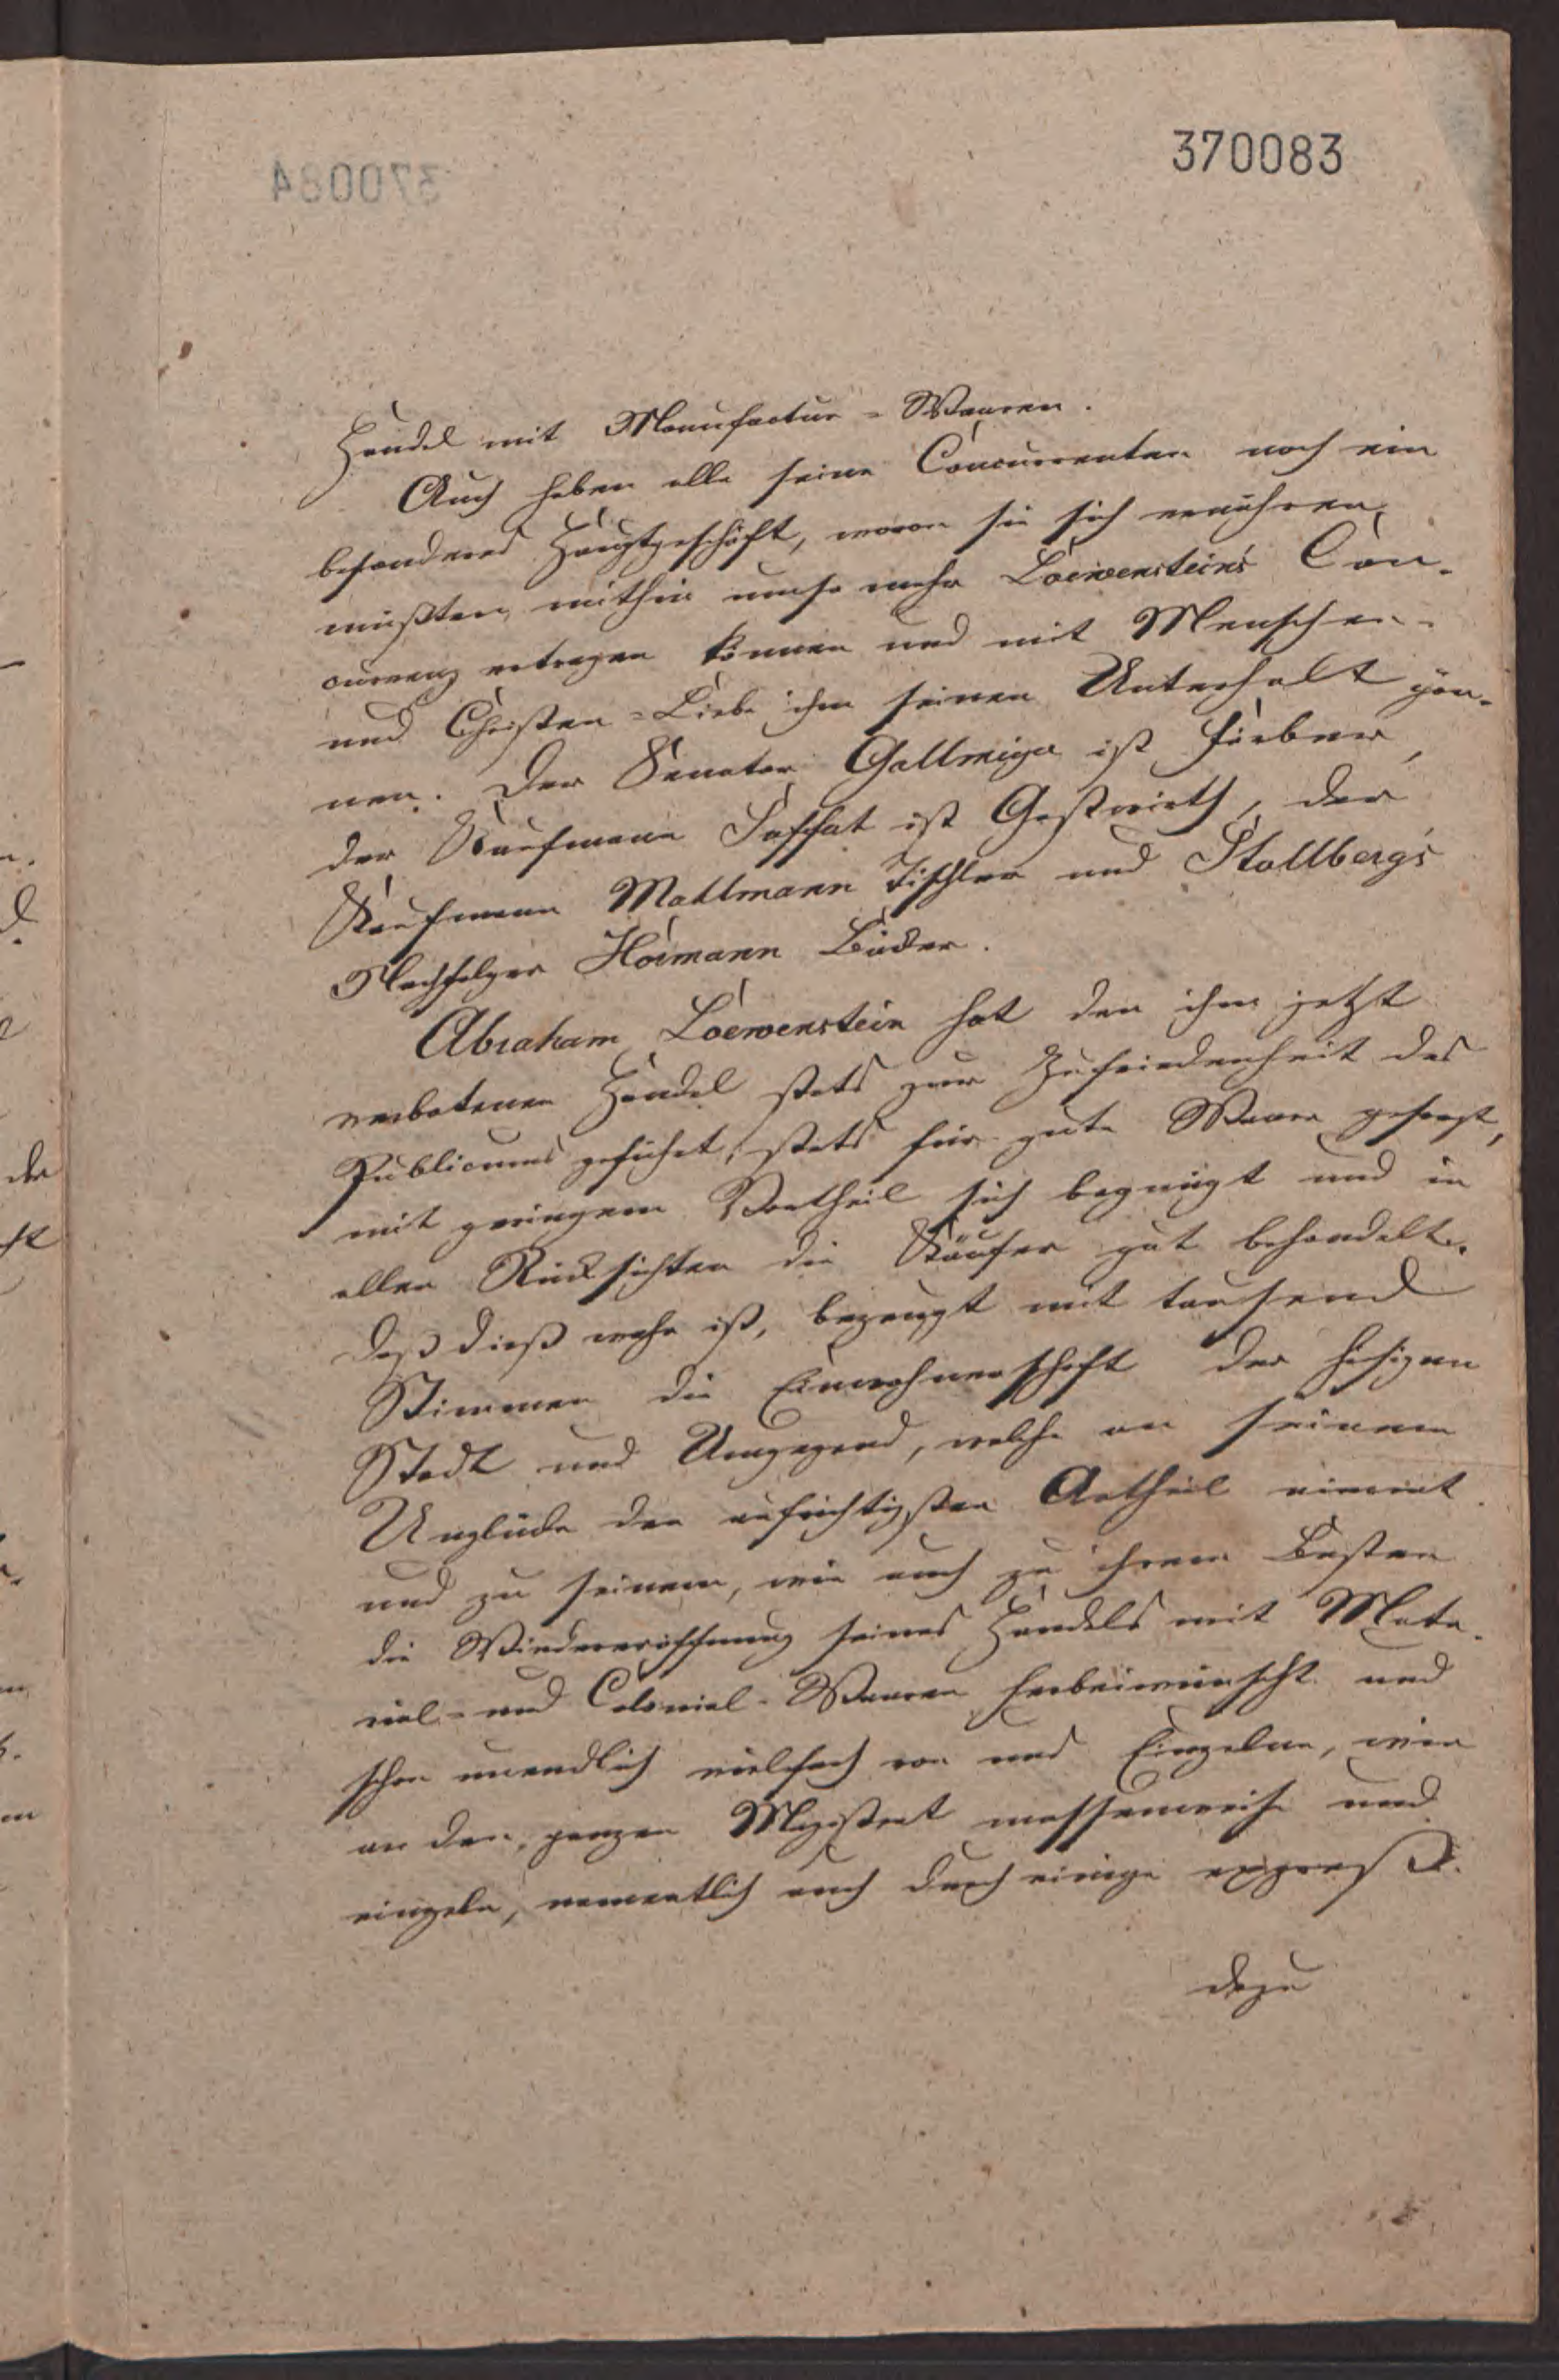 370083
370084
Handel mit Manufactur=Waaren.
Auch haben alle seine Concurrenten noch ein
besonderes Hauptgeschäft, wovon sie sich ernähren,
müßten mithin umso mehr Loewenstein's Con-
currenz ertragen können und mit Menschen-
und Christen=Liebe ihm seinen Unterhalt gön-
nen. Der Senator Gallmeyer ist Färber,
der Kaufmann ist Gastwirth, der
Kaufmann Mallmann Tischler und Stollberg's
Nachfolger Hoimann Bäcker.
Abraham Loewenstein hat den ihm jetzt
verbotenen Handel stets zur Zufriedenheit des
Publicums geführt, stets für gute Waare gesorgt,
mit geringem Vortheil sich begnügt und in
allen Rücksichten die Käufer gut behandelt.
Daß dieß wahr ist, bezeugt mit tausend
Stimmen die Einwohnerschaft der hiesigen
Stadt und Umgegend, welche an seinem
Unglücke den aufrichtigsten Antheil nimmt
und zu seinem, wie auch zu ihrem Besten
die Wiedereröffnung seines Handels mit Mate-
rial- und Colonial-Waaren herbeiwünscht und
schon unendlich vielfach von uns Einzelnen, wie
an den ganzen Magistrat massenweise und
einzeln, namentlich auch durch einige expreß
dazu
der